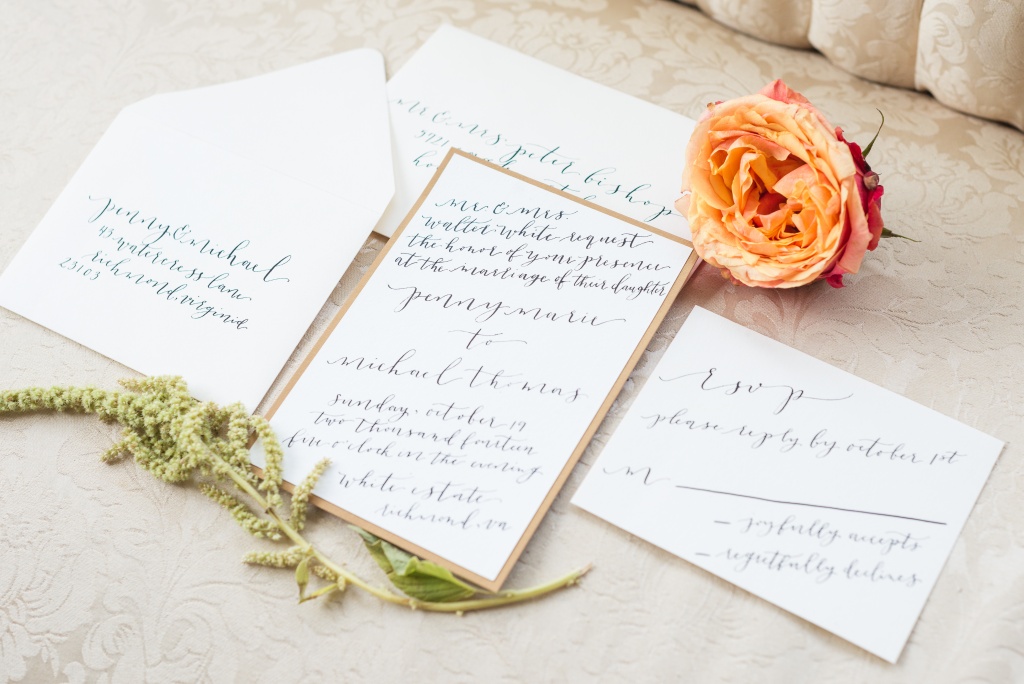 penny & michael
45 watercress lane
richmond, virginia
23103
mr & mrs. peter bishop
5921
mr & mrs.
walter white request
the honor of your presence
at the marriage of their daughter
penny marie
to
michael thomas
sunday, october 19
two thousand fourteen
five o'clock in the evening
white estate
richmond, va
rsvp
please reply by october 1st
m
joyfully accepts
regretfully declines